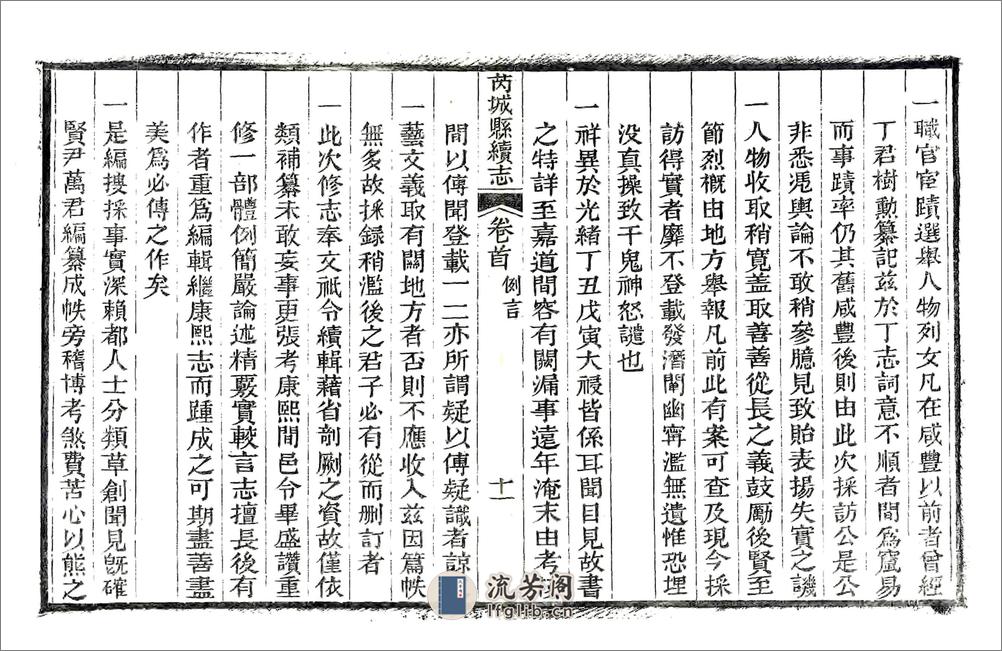 一職官宦蹟選舉人物列女凡在咸豐以前者曾經
丁君樹勳纂記茲於丁志詞意不順者間爲竄易
而事蹟率仍其舊咸豐後則由此次採訪公是公
非悉慿輿論不敢稍參臆見致貽表揚失實之譏
一人物收取稍寬盖取善善從長之義鼓厲後賢至
節烈概由地方舉報凡前此有案可查及現今採
訪得實者靡不登載發潛闡幽寧濫無遺惟恐埋
没真操致干鬼神怒譴也
一祥異於光緒丁丑戊寅大祲皆係耳聞目見故書
之特詳至嘉道間容有闕漏事遠年淹末由考
芮城縣續志 卷首 例言 十一
間以傳聞登載一二亦所謂疑以傳疑識者諒
一藝文義取有關地方者否則不應收入茲因篇帙
無多故採録稍濫後之君子必有從而删訂者
一此次修志奉文祇令續輯藉省剞劂之資故僅依
類補纂未敢妄事更張考康熙間邑令畢盛讚重
修一部體例簡嚴論述精覈實較言志擅長後有
作者重爲編輯繼康熙志而踵成之可期盡善盡
美爲必傳之作矣
一是編搜採事實深賴都人士分類草創聞見旣確
賢尹萬君編纂成帙旁稽博考煞費苦心以熊之
流芳阁
lfglib.cn